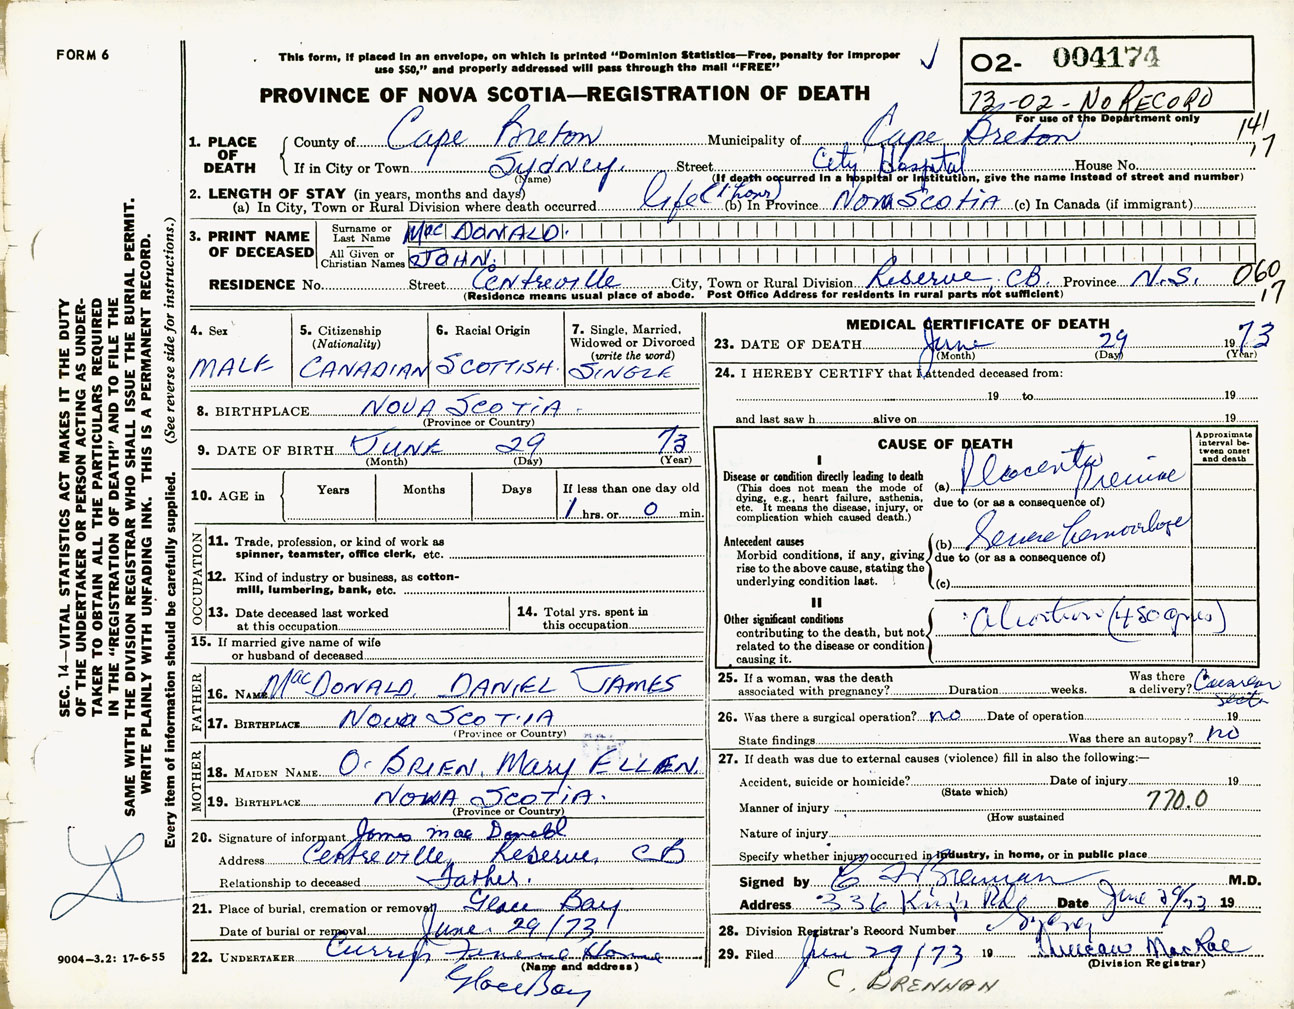 FORM 6
This form, if placed in an envelope, on which is printed "Dominion Statistics—Free, penalty for improper
use $50," and properly addressed will pass through the mail "FREE"
O2- 004174
73-02 - NO RECORD
For use of the Department only
PROVINCE OF NOVA SCOTIA—REGISTRATION OF DEATH
141
17
1. PLACE OF DEATH
County of Cape Breton Municipality of Cape Breton
If in City or Town Sydney. Street City Hospital House No.
(Name) (If death occurred in a hospital or institution, give the name instead of street and number)
2. LENGTH OF STAY (in years, months and days)
(a) In City, Town or Rural Division where death occurred life (1 hour) (b) In Province NOVA SCOTIA (c) In Canada (if immigrant)
3. PRINT NAME OF DECEASED
Surname or Last Name MacDONALD.
All Given or Christian Names JOHN.
RESIDENCE No. Street Centreville City, Town or Rural Division Reserve, CB. Province N.S.
(Residence means usual place of abode. Post Office Address for residents in rural parts not sufficient)
060
17
4. Sex
MALE
5. Citizenship
(Nationality)
CANADIAN
6. Racial Origin
SCOTTISH.
7. Single, Married,
Widowed or Divorced
(write the word)
SINGLE
8. BIRTHPLACE NOVA SCOTIA.
(Province or Country)
9. DATE OF BIRTH JUNE 29 73
(Month) (Day) (Year)
10. AGE in Years Months Days If less than one day old
1 hrs. or 0 min.
OCCUPATION
11. Trade, profession, or kind of work as
spinner, teamster, office clerk, etc.
12. Kind of industry or business, as cotton-
mill, lumbering, bank, etc.
13. Date deceased last worked
at this occupation
14. Total yrs. spent in
this occupation
15. If married give name of wife
or husband of deceased
FATHER
16. NAME MacDONALD, DANIEL JAMES
17. BIRTHPLACE NOVA SCOTIA
(Province or Country)
MOTHER
18. MAIDEN NAME O'BRIEN, MARY ELLEN.
19. BIRTHPLACE NOVA SCOTIA.
(Province or Country)
20. Signature of informant James MacDonald
Address Centreville, Reserve, CB
Relationship to deceased Father.
21. Place of burial, cremation or removal Glace Bay
Date of burial or removal June 29/73
22. UNDERTAKER Curry's Funeral Home
(Name and address)
Glace Bay
MEDICAL CERTIFICATE OF DEATH
23. DATE OF DEATH June 29 1973
(Month) (Day) (Year)
24. I HEREBY CERTIFY that I attended deceased from:
19 to 19
and last saw h alive on 19
CAUSE OF DEATH
Approximate
interval be-
tween onset
and death
I
Disease or condition directly leading to death
(This does not mean the mode of
dying, e.g., heart failure, asthenia,
etc. It means the disease, injury, or
complication which caused death.)
(a) Placenta Previae
due to (or as a consequence of)
Antecedent causes
Morbid conditions, if any, giving
rise to the above cause, stating the
underlying condition last.
(b) Severe hemorrhage
due to (or as a consequence of)
(c)
II
Other significant conditions
contributing to the death, but not
related to the disease or condition
causing it.
Abortion (480 gms)
25. If a woman, was the death
associated with pregnancy? Duration weeks. Was there
a delivery? Cesarean
section
26. Was there a surgical operation? no Date of operation 19
State findings Was there an autopsy? no
27. If death was due to external causes (violence) fill in also the following:—
Accident, suicide or homicide? Date of injury 19
(State which)
Manner of injury 770.0
(How sustained
Nature of injury
Specify whether injury occurred in industry, in home, or in public place
Signed by C F Brennan M.D.
Address 336 Kings Rd Date June 29/73 19
Sydney
28. Division Registrar's Record Number
29. Filed June 29/73 19 MacRae
(Division Registrar)
C. BRENNAN
SEC. 14—VITAL STATISTICS ACT MAKES IT THE DUTY
OF THE UNDERTAKER OR PERSON ACTING AS UNDER-
TAKER TO OBTAIN ALL THE PARTICULARS REQUIRED
IN THE "REGISTRATION OF DEATH" AND TO FILE THE
SAME WITH THE DIVISION REGISTRAR WHO SHALL ISSUE THE BURIAL PERMIT.
WRITE PLAINLY WITH UNFADING INK. THIS IS A PERMANENT RECORD.
Every item of information should be carefully supplied. (See reverse side for instructions.)
9004—3.2: 17-6-55